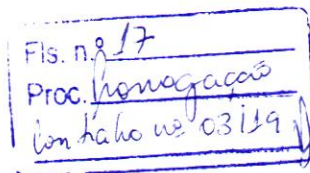 Fls. n.º 17
Proc. Prorrogação
Contrato nº 03/19